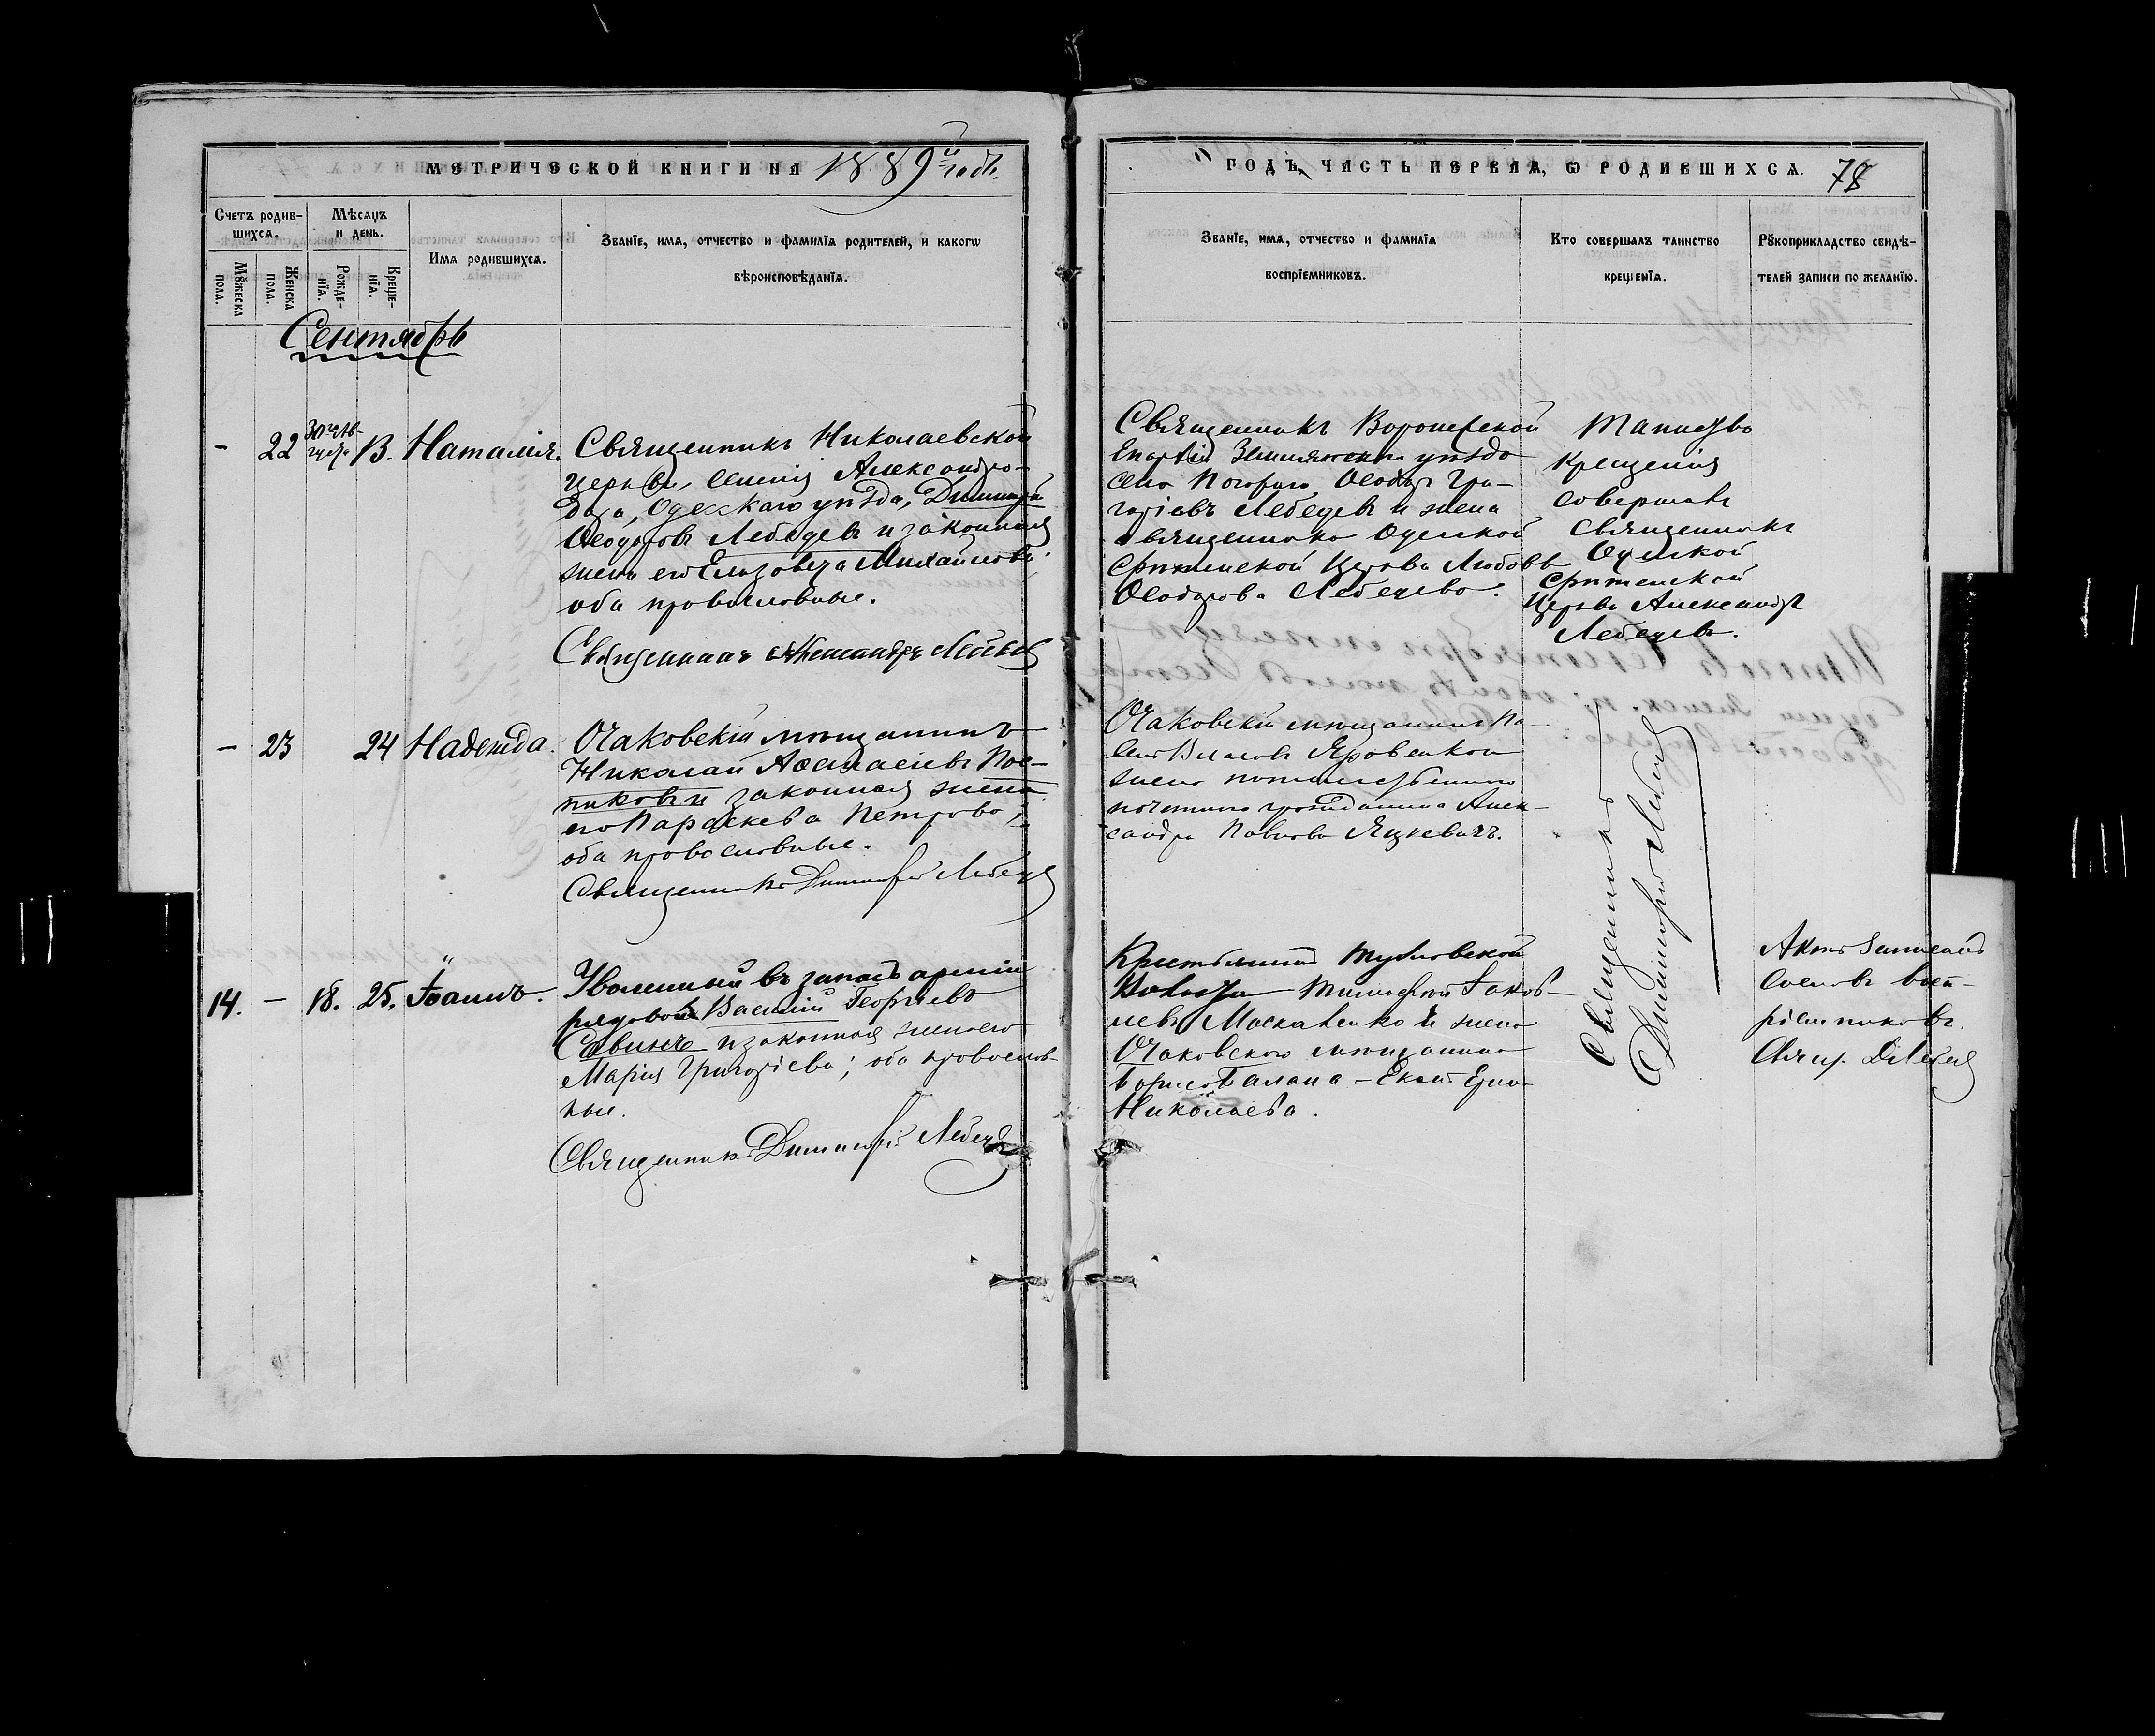 МЕТРИЧЕСКОЙ КНИГИ НА 1889й годъ.
Счетъ родив-
шихся.
Мѣсяцъ
и день.
Имя родившихся.
Званіе, имя, отчество и фамилія родителей, и какогѡ
вѣроисповѣданія.
Мꙋжеска
пола.
Женска
пола.
Рожде-
нія.
Креще-
нія.
Сентябрь
- 22 30го Ав-
густа 13. Наталія.
Священникъ Николаевской
церкви, селенія Александро-
вка, Одесскаго уѣзда, Димитрій
Ѳеодоровъ Лебедевъ и законная
жена его Елизавета Михайлова;
оба православные.
Священникъ Александръ Лебедев
- 23 24 Надежда.
Очаковскій мѣщанинъ
Николай Аѳанасіевъ Пос-
никовъ и законная жена
его Параскева Петрова;
оба православные.
Священникъ Димитрій Лебедев
14. - 18. 25. Іоаннъ.
Уволенный въ запасъ арміи
рядовой Василій Георгіевъ
Савинъ и законная жена его
Марія Григоріева; оба православ-
ные.
Священникъ Димитрій Лебедев
ГОДЪ, ЧАСТЬ ПЕРВАЯ, Ѡ РОДИВШИХСЯ. 78
Званіе, имя, отчество и фамилія
воспріемниковъ.
Кто совершалъ таинство
крещенія.
Рꙋкоприкладство свидѣ-
телей записи по желанію.
Священникъ Воронежской
Епархіи Землянскаго уѣзда
села Ѳеодоръ Гри-
горіевъ Лебедевъ и жена
священника Одесской
Срѣтенской Церкви Любовь
Ѳеодорова Лебедева.
Таинство
крещенія
совершалъ
священникъ
Одесской
Срѣтенской
Церкви Александръ
Лебедевъ.
Очаковскій мѣщанинъ Па-
велъ Власовъ Яровенко и
жена потомственнаго
почетнаго гражданина Алек-
сандра Павлова Яцкевичъ.
Крестьянинъ
Волости Тимоѳей Іаков-
левъ Москаленко и жена
Очаковскаго мѣщанина
Бориса Галана - Екатерина
Николаева.
Священникъ
Димитрій Лебедев
Актъ записанъ
со словъ восп-
ріемниковъ.
Свящ. Д. Лебедев